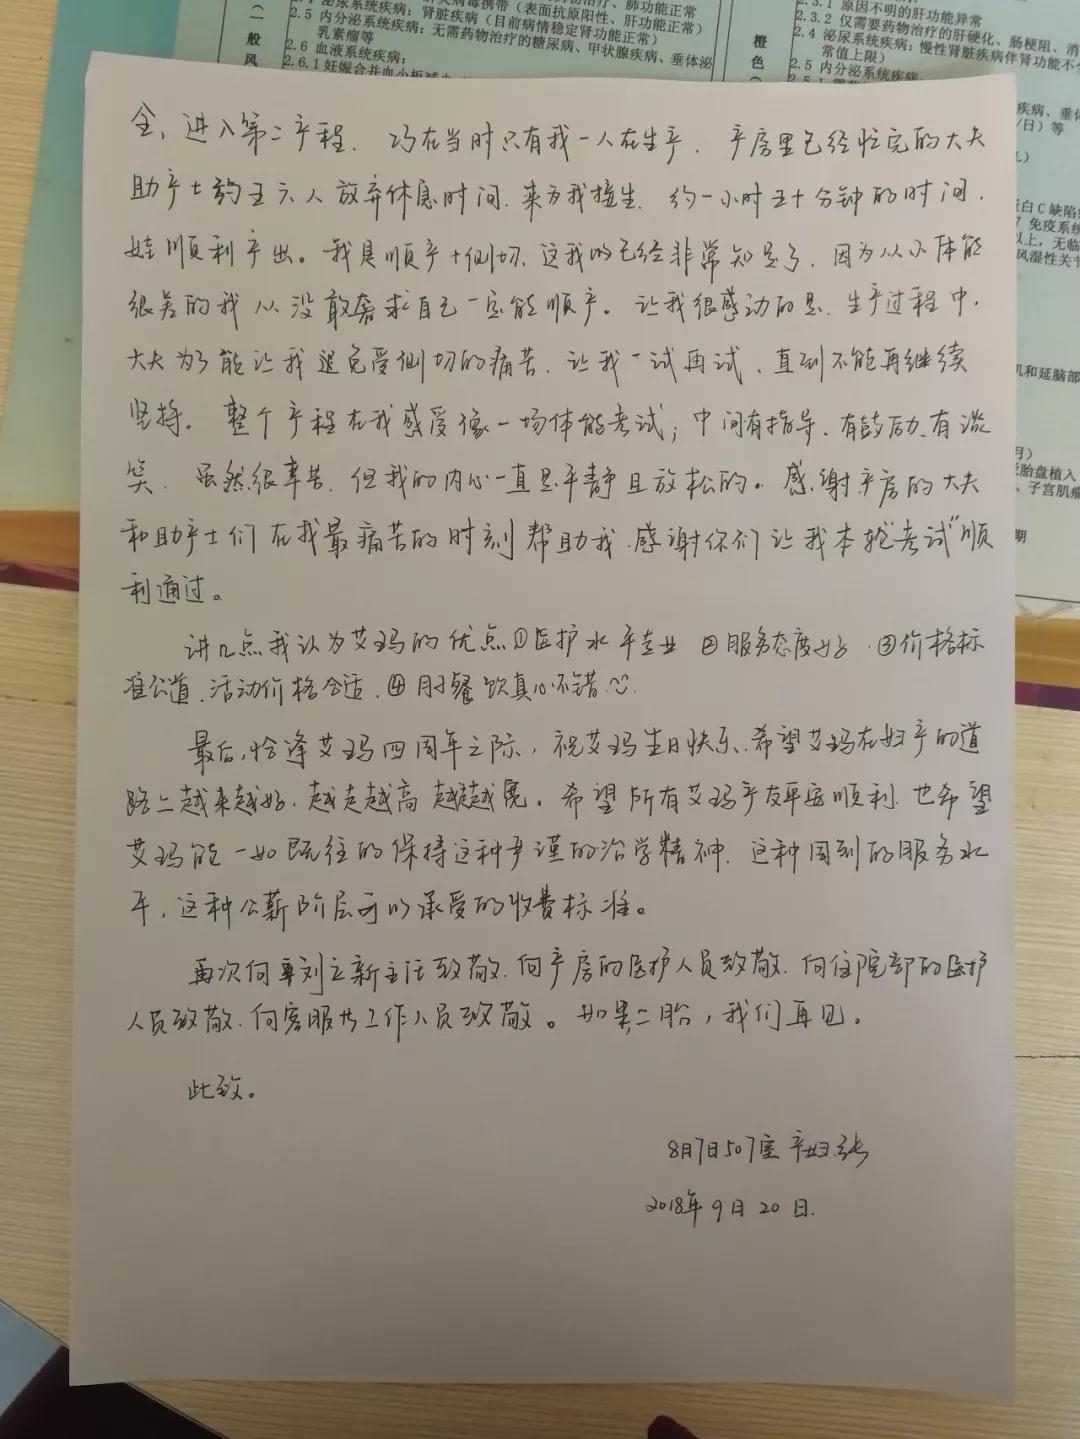 乳素瘤等
2.6 血液系统疾病：
2.3.1 原因不明的肝功能异常
2.3.2 仅需要药物治疗的肝硬化、肠梗阻、消
2.4 泌尿系统疾病：慢性肾脏疾病伴肾功能不
常值上限）
2.5 内分泌系统疾病：
2.5 内分泌系统疾病：无需药物治疗的糖尿病、甲状腺疾病、垂体泌
全，进入第二产程．巧在当时只有我一人在生产．产房里已经忙完的大夫
助产士约五六人放弃休息时间．来为我接生．约一小时五十分钟的时间．
娃顺利产出。我是顺产+侧切．这我已经非常知足了．因为从小体能
很差的我从没敢奢求自己一定能顺产。让我很感动的是．生产过程中．
大夫为了能让我避免受侧切的痛苦．让我一试再试．直到不能再继续
坚持。整个产程在我感受像一场体能考试；中间有指导、有鼓励、有谈
笑．虽然很辛苦．但我的内心一直是平静且放松的。感谢产房的大夫
和助产士们在我最痛苦的时刻帮助我．感谢你们让我本轮“考试”顺
利通过。
讲几点我认为艾玛的优点①医护水平专业 ②服务态度好．③价格标
准公道．活动价格合适．④月子餐饮真心不错．
最后，恰逢艾玛四周年之际，祝艾玛生日快乐．希望艾玛在妇产的道
路上越来越好．越走越高 越走越宽。希望所有艾玛产友平安顺利．也希望
艾玛能一如既往的保持这种严谨的治学精神．这种周到的服务水
平，这种公薪阶层可以承受的收费标准。
再次向刘立新主任致敬．向产房的医护人员致敬．向住院部的医护
人员致敬．向客服工作人员致敬。如果二胎，我们再见。
此致。
8月7日507室 产妇．张
2018年9月20日．